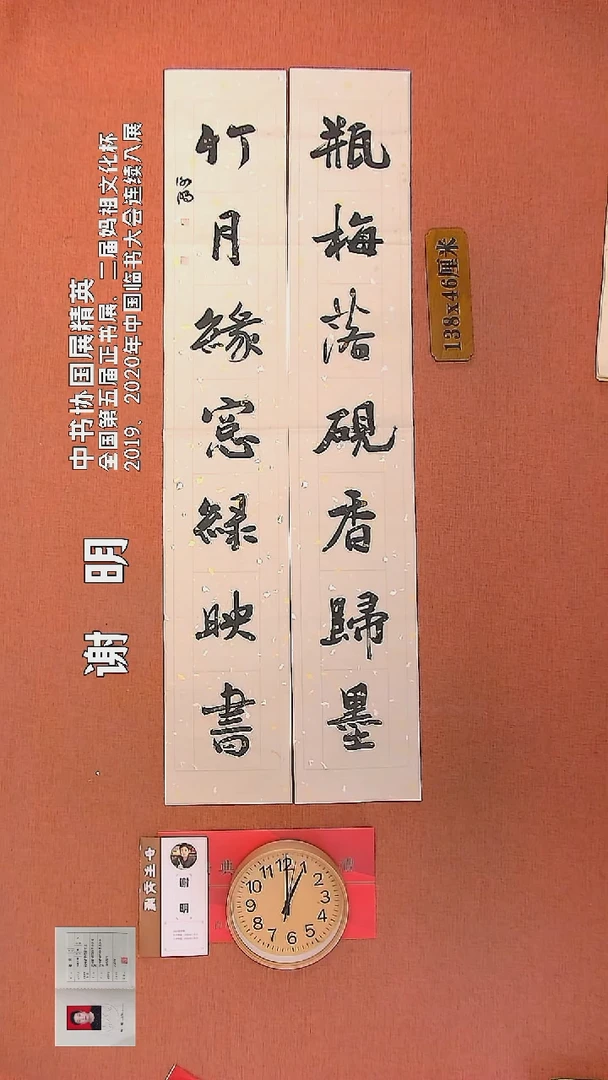 瓶梅落硯香歸墨
竹月緣窓綠映書
138x46厘米
谢 明
中书协国展精英
全国第五届正书展、二届妈祖文化杯
2019、2020年中国临书大会连续入展
12
1
2
3
4
5
6
7
8
9
10
11